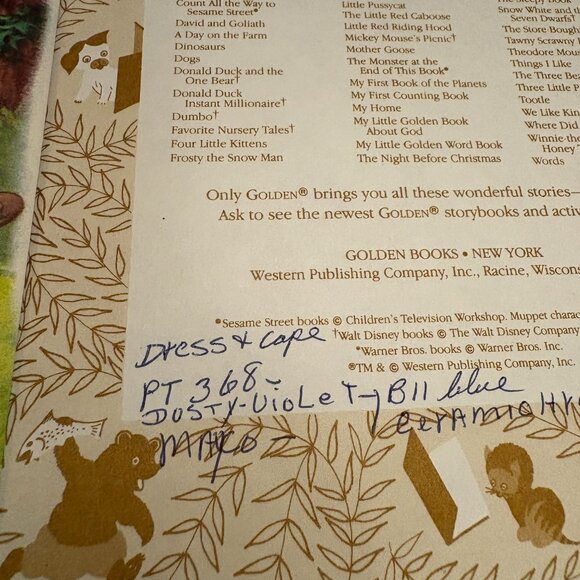 Count All the Way to
Sesame Street*
David and Goliath
A Day on the Farm
Dinosaurs
Dogs
Donald Duck and the
One Bear†
Donald Duck
Instant Millionaire†
Dumbo†
Favorite Nursery Tales†
Four Little Kittens
Frosty the Snow Man
Little Pussycat
The Little Red Caboose
Little Red Riding Hood
Mickey Mouse's Picnic†
Mother Goose
The Monster at the
End of This Book*
My First Book of the Planets
My First Counting Book
My Home
My Little Golden Book
About God
My Little Golden Word Book
The Night Before Christmas
Snow White and
Seven Dwarfs†
The Store Bough
Tawny Scrawny
Theodore Mou
Things I Like
The Three Bea
Three Little P
Tootle
We Like Kin
Where Did
Winnie-the
Honey
Words
Only GOLDEN® brings you all these wonderful stories—
Ask to see the newest GOLDEN® storybooks and activ
GOLDEN BOOKS • NEW YORK
Western Publishing Company, Inc., Racine, Wiscons
*Sesame Street books © Children's Television Workshop. Muppet charac
†Walt Disney books © The Walt Disney Company
*Warner Bros. books © Warner Bros. Inc.
®TM & © Western Publishing Company, Inc.
Dress & cape
PT 368-
DUSTY-VIOLET- B11 blue